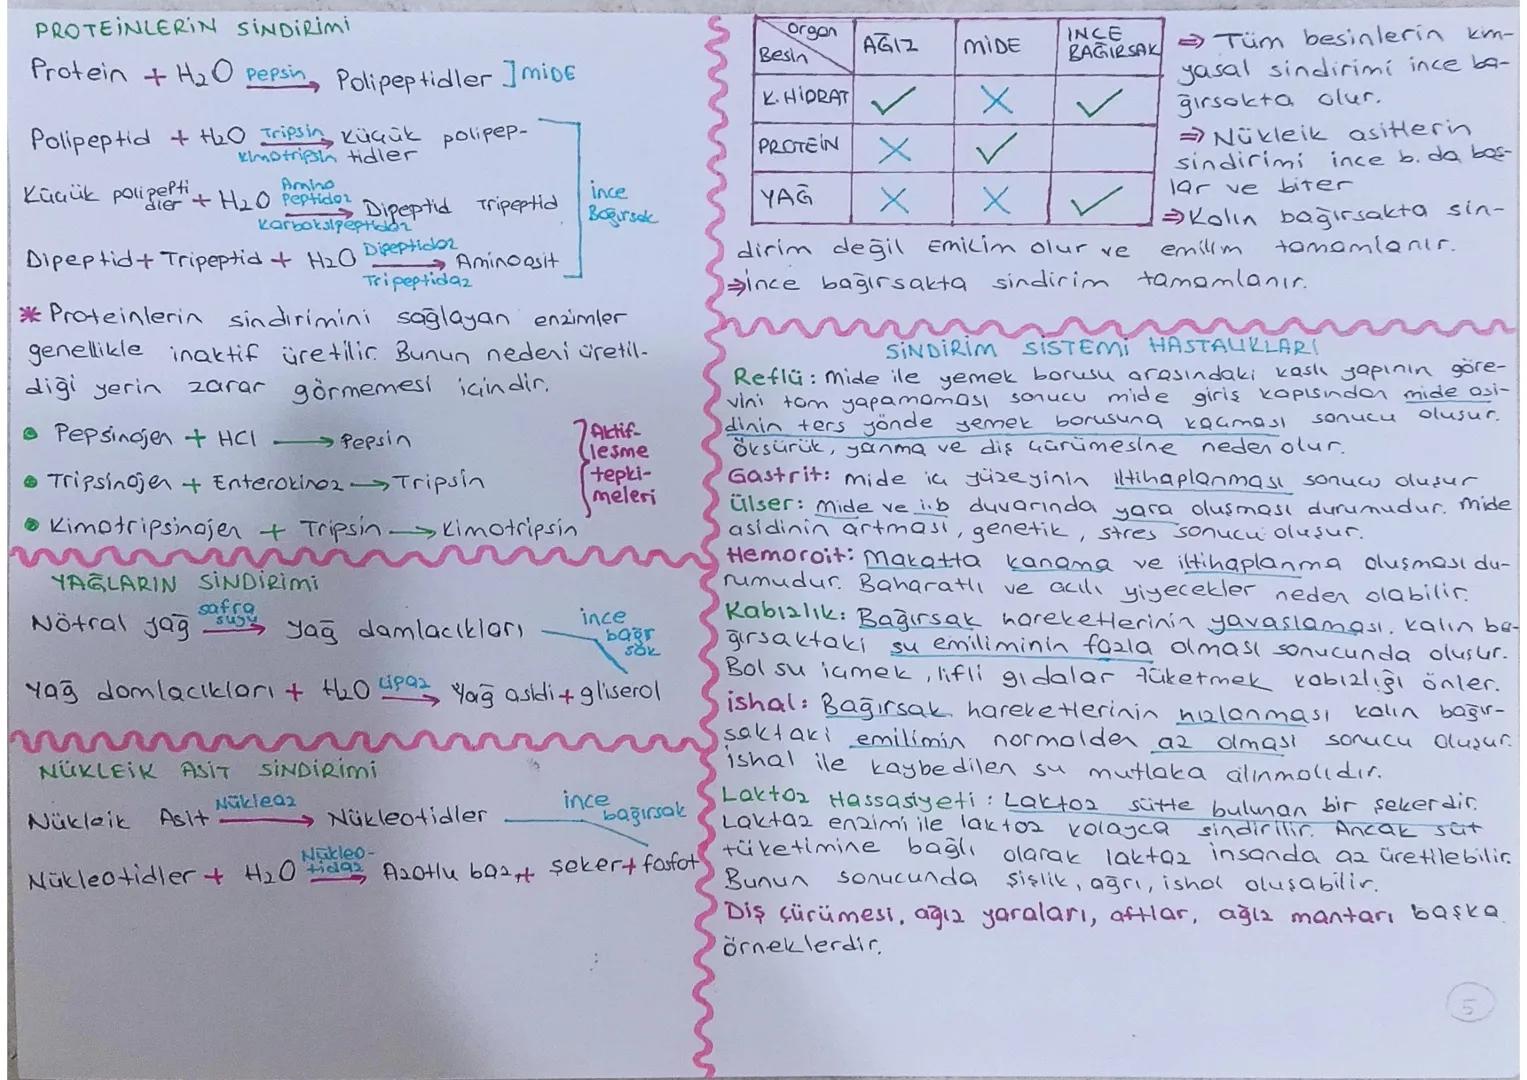 PROTEİNLERİN SİNDİRİMİ
Protein + H₂O Pepsin → Polipeptidler ] MİDE
Polipeptid + H₂O Tripsin Kimotripsin → Küçük polipep-
tidler
Küçük polipepti
dler + H₂O Amino Peptidaz Karboksipeptidaz → Dipeptid Tripeptid
ince
Bağırsak
Dipeptid + Tripeptid + H₂O Dipeptidaz Tripeptidaz → Aminoasit
* Proteinlerin sindirimini sağlayan enzimler
genellikle inaktif üretilir. Bunun nedeni üretil-
diği yerin zarar görmemesi içindir.
• Pepsinojen + HCl → Pepsin
• Tripsinojen + Enterokinaz → Tripsin
• Kimotripsinojen + Tripsin → Kimotripsin
Aktif-
leşme
tepki-
meleri
YAĞLARIN SİNDİRİMİ
Nötral yağ safra suyu → yağ damlacıkları
ince
bağır
sak
Yağ damlacıkları + H₂O Lipaz → Yağ asidi + gliserol
NÜKLEİK ASİT SİNDİRİMİ
Nükleik Asit Nükleaz → Nükleotidler
ince
bağırsak
Nükleotidler + H₂O Nükleo-
tidaz → Azotlu baz + şeker + fosfat
Organ
Besin AĞIZ MİDE İNCE
BAĞIRSAK
K.HİDRAT ✓ X ✓
PROTEİN X ✓
YAĞ X X ✓
⇒ Tüm besinlerin kim-
yasal sindirimi ince ba-
ğırsakta olur.
⇒ Nükleik asitlerin
sindirimi ince b. da baş-
lar ve biter
⇒ Kalın bağırsakta sin-
dirim değil Emilim olur ve emilim tamamlanır.
⇒ ince bağırsakta sindirim tamamlanır.
SİNDİRİM SİSTEMİ HASTALIKLARI
Reflü: Mide ile yemek borusu arasındaki kaslı yapının göre-
vini tam yapamaması sonucu mide giriş kapısından mide asi-
dinin ters yönde yemek borusuna kaçması sonucu oluşur.
Öksürük, yanma ve diş çürümesine neden olur.
Gastrit: mide iç yüzeyinin iltihaplanması sonucu oluşur
Ülser: Mide ve i.b duvarında yara oluşması durumudur. Mide
asidinin artması, genetik, stres sonucu oluşur.
Hemoroit: Makatta kanama ve iltihaplanma oluşması du-
rumudur. Baharatlı ve acılı yiyecekler neden olabilir.
Kabızlık: Bağırsak hareketlerinin yavaşlaması, kalın ba-
ğırsaktaki su emiliminin fazla olması sonucunda oluşur.
Bol su içmek, lifli gıdalar tüketmek kabızlığı önler.
ishal: Bağırsak hareketlerinin hızlanması kalın bağır-
saktaki emilimin normalden az olması sonucu oluşur.
ishal ile kaybedilen su mutlaka alınmalıdır.
Laktoz Hassasiyeti: Laktoz sütte bulunan bir şekerdir.
Laktaz enzimi ile laktoz kolayca sindirilir. Ancak süt
tüketimine bağlı olarak laktaz insanda az üretilebilir.
Bunun sonucunda şişlik, ağrı, ishal oluşabilir.
Diş çürümesi, ağız yaraları, aftlar, ağız mantarı başka
örneklerdir.
5